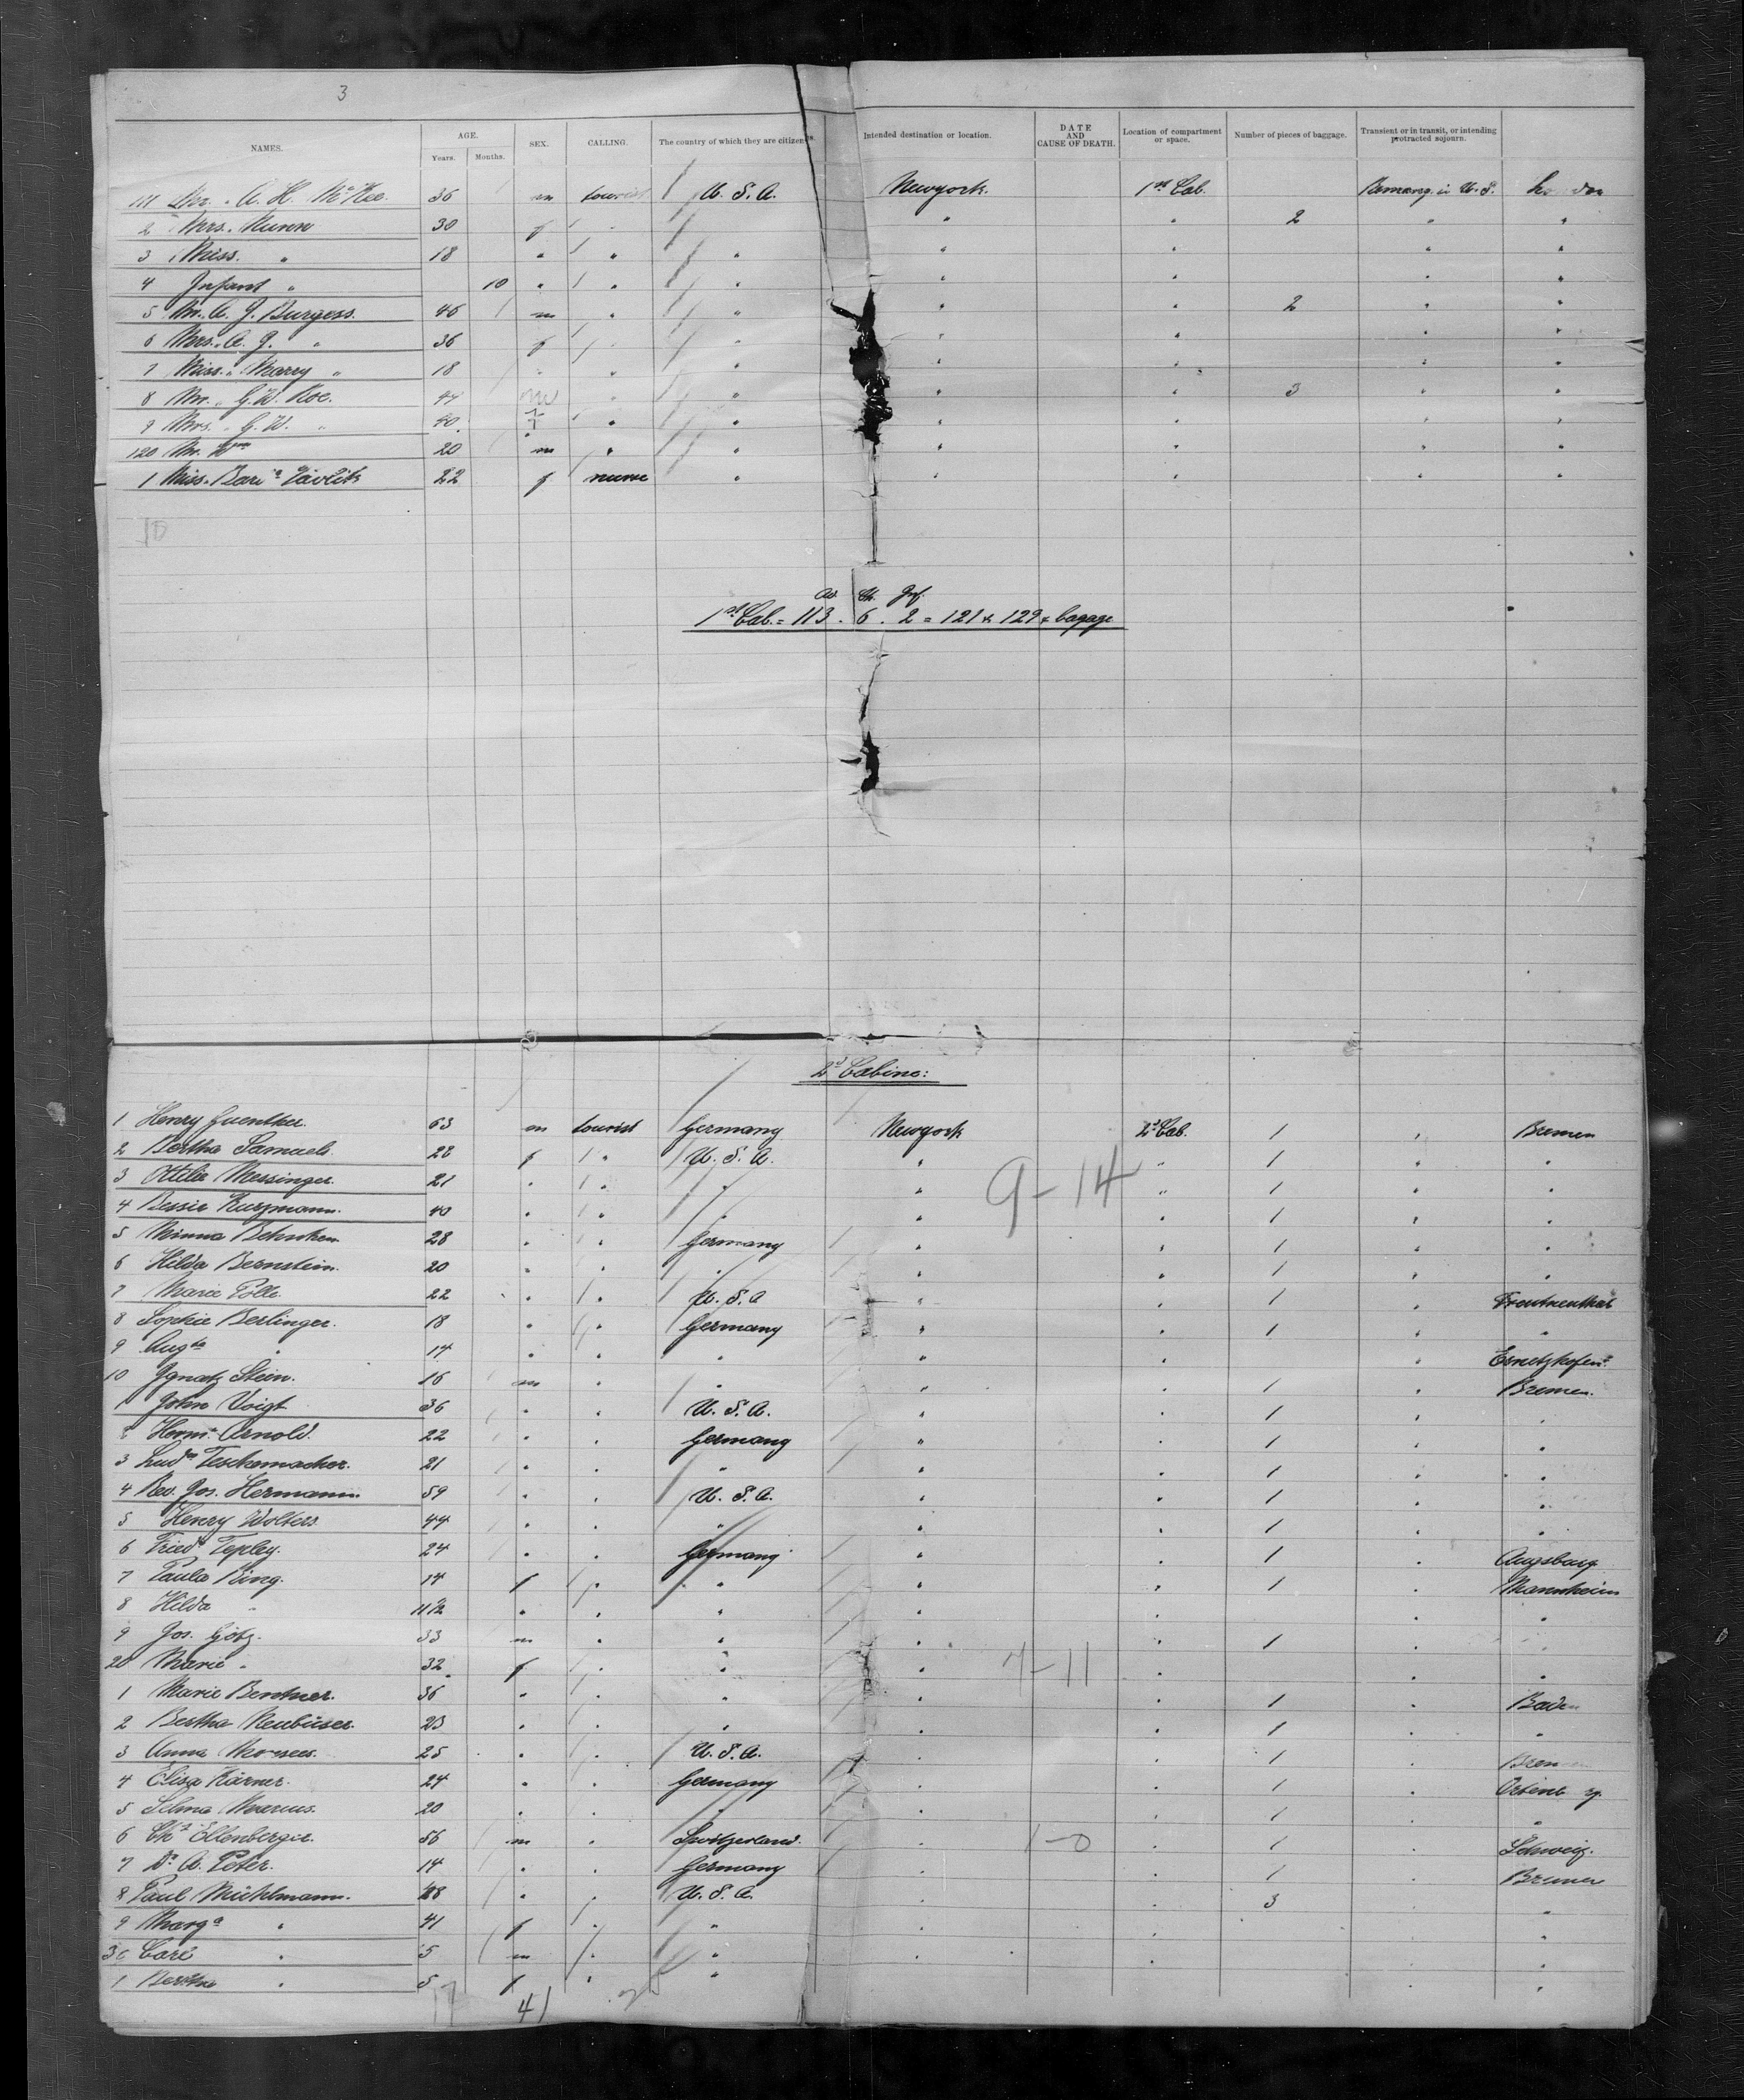 3
NAMES. AGE. Years. Months. SEX. CALLING. The country of which they are citizens. Intended destination or location. DATE AND CAUSE OF DEATH. Location of compartment or space. Number of pieces of baggage. Transient or in transit, or intending protracted sojourn.
111 Mr. A. H. McKee. 36 m tourist U. S. A. Newyork. 1st Cab. in U. S.
2 Mrs. Munn 30 f " " " 2 " "
3 Miss. " 18 " " " " " " "
4 Infant " 10 " " " " " " "
5 Mr. A. J. Burgess. 46 m " " " " 2 " "
6 Mrs. A. J. " 36 f " " " " " "
7 Miss. Marry " 18 " " " " " " "
8 Mr. G. W. Roe. 44 m " " " " 3 " "
9 Mrs. G. W. " 40 f " " " " " "
120 Mr. Wm 20 m " " " " " "
1 Miss. 22 f nurse " " " " "
10
Ad. Ch. Jnf.
1st Cab. = 113. 6. 2 = 121 & 129 bagage
2d Cabine:
1 Henry Guenther. 63 m tourist Germany Newyork 2d Cab. 1 " Bremen
2 Bertha Samuels. 22 f " U. S. A. " " 1 " "
3 Ottilie Messinger. 21 " " " " " 1 " "
9-14
4 Bessie Kurzmann. 40 " " " " " 1 " "
5 Minna Behnken 28 " " Germany " " 1 " "
6 Hilda Bernstein. 20 " " " " " 1 " "
7 Marie Polle. 22 " " U. S. A " " 1 "
8 Sophie Berlinger. 18 " " Germany " " 1 " "
9 Augta " 14 " " " " " "
10 Ignatz Stein. 16 m " " " " 1 " Bremen.
1 John Voigt 36 " " U. S. A. " " 1 " "
2 Herm. Arnold. 22 " " Germany " " 1 " "
3 Ludw Teschemacher. 21 " " " " " 1 " "
4 Rev. Jos. Hermann. 59 " " U. S. A. " " 1 " "
5 Henry Wolters. 44 " " " " " 1 " "
6 Friedr Tepley. 24 " " Germany " " 1 " Augsburg
7 Paula Ring. 14 f " " " " 1 " Mannheim
8 Hilda " 11½ " " " " " " "
9 Jos. Götz. 33 m " " " " 1 " "
20 Marie " 32 f " " " " " "
1 Marie Bentner. 36 " " " " " 1 " Baden
2 Bertha Neubüser. 23 " " " " " 1 " "
3 Anna 25 " " U. S. A. " " 1 " Bremen
4 Elisa Körner. 24 " " Germany " " 1 "
5 Selma Marcus. 20 " " " " " 1 " "
6 Chs Ellenberger. 56 m " Switzerland. " 1-0 " 1 " Schweiz.
7 Dr. A. Peter. 14 " " Germany " " 1 " Bremen
8 Paul Mühlmann. 48 " " U. S. A. " " 3 " "
9 Marga " 41 f " " " " "
30 Carl " 5 m " " " " "
1 Bertha " 5 f " " " "
17 41